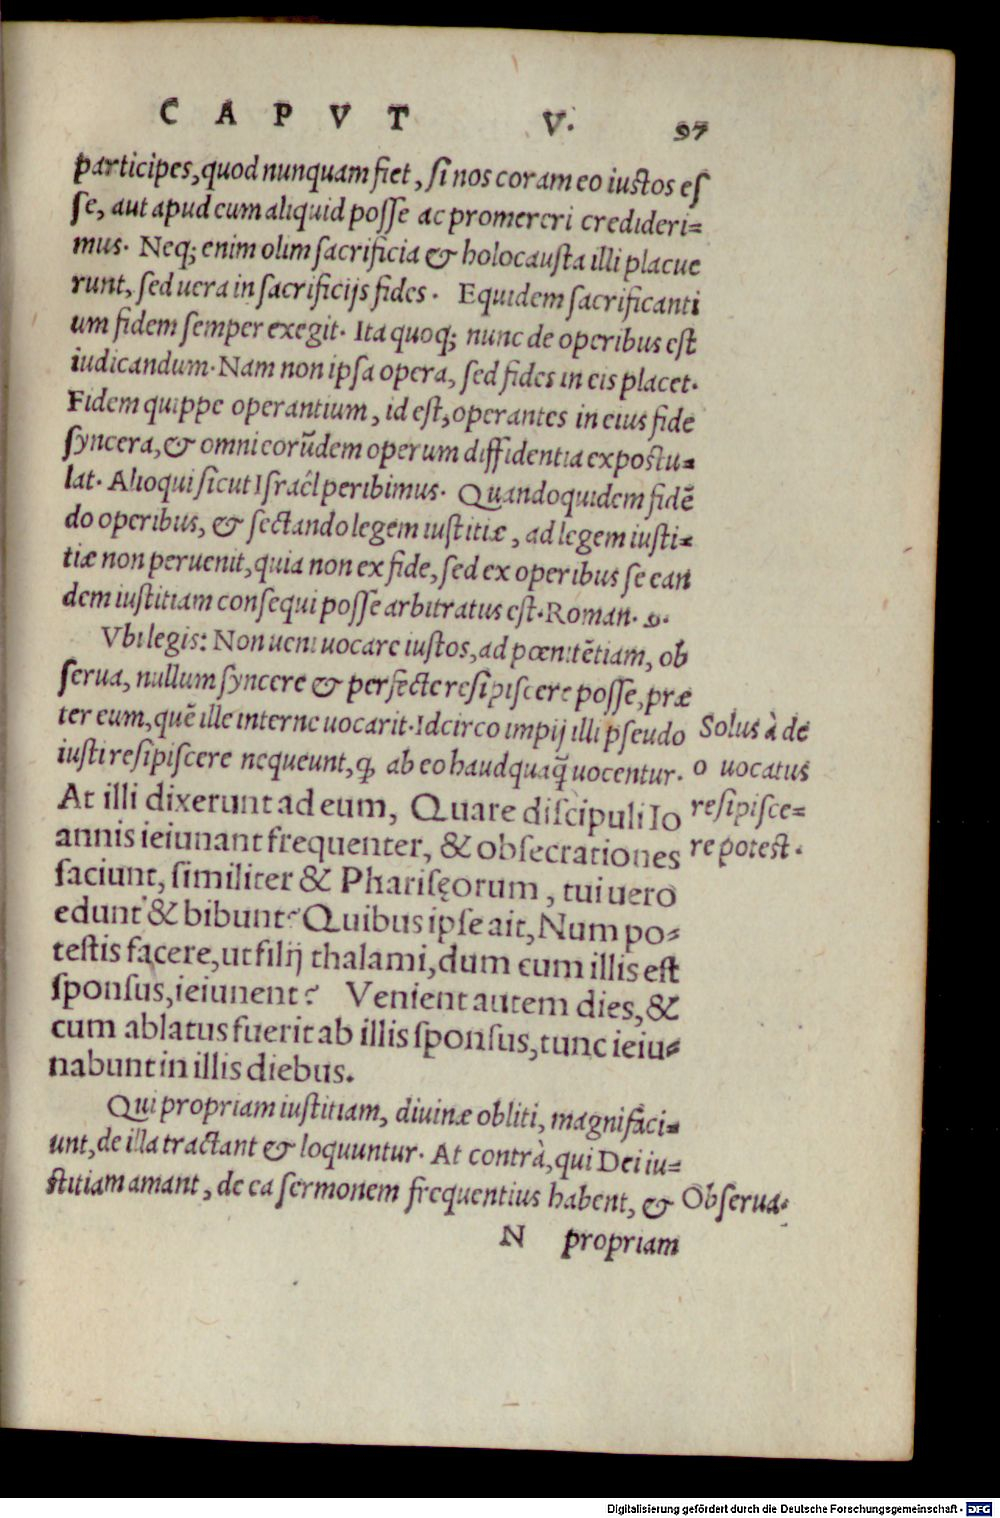 CAPVT V. 97
participes, quod nunquam fiet, si nos coram eo iustos eſ
ſe, aut apud eum aliquid poſſe ac promereri credideri=
mus. Neq; enim olim ſacrificia & holocauſta illi placue
runt, ſed uera in ſacrificijs fides. Equidem ſacrificanti
um fidem ſemper exegit. Ita quoq; nunc de operibus eſt
iudicandum. Nam non ipſa opera, ſed fides in eis placet.
Fidem quippe operantium, id eſt, operantes in eius fide
ſyncera, & omni eorũdem operum diffidentia expoſtu=
lat. Alioqui ſicut Iſraël peribimus. Quandoquidem fidē
do operibus, & ſectando legem iuſtitiæ, ad legem iuſti=
tiæ non peruenit, quia non ex fide, ſed ex operibus ſe ean
dem iuſtitiam conſequi poſſe arbitratus eſt. Roman. 9.
Vbi legis: Non ueni uocare iuſtos, ad pœnitētiam, ob
ſerua, nullum ſyncere & perfecte reſipiſcere poſſe, præ
ter eum, quē ille interne uocarit. Idcirco impij illi pſeudo
iuſti reſipiſcere nequeunt, ꝙ ab eo haudquaq̃ uocentur.
Solus à de
o uocatus
reſipiſce=
re poteſt.
At illi dixerunt ad eum, Quare diſcipuli Io
annis ieiunant frequenter, & obſecrationes
faciunt, ſimiliter & Phariſęorum, tui uero
edunt & bibunt? Quibus ipſe ait, Num po=
teſtis facere, ut filij thalami, dum cum illis eſt
ſponſus, ieiunent? Venient autem dies, &
cum ablatus fuerit ab illis ſponſus, tunc ieiu=
nabunt in illis diebus.
Qui propriam iuſtitiam, diuinæ obliti, magnifaci=
unt, de illa tractant & loquuntur. At contrà, qui Dei iu=
ſtitiam amant, de ea ſermonem frequentius habent, &
Obſerua.
N propriam
Digitalisierung gefördert durch die Deutsche Forschungsgemeinschaft - DFG